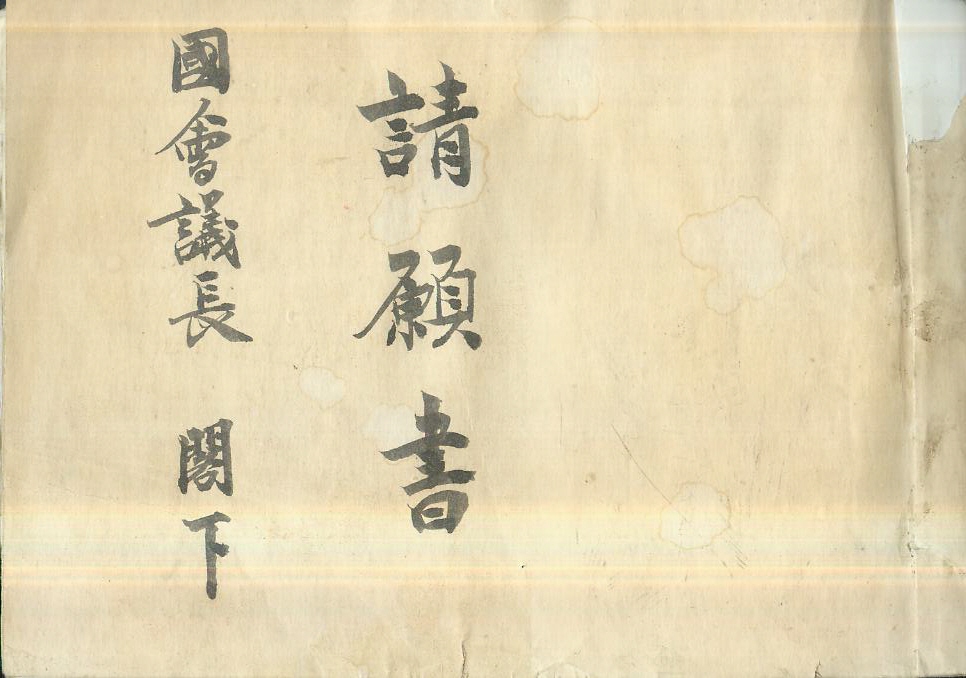 請願書
國會議長 閣下